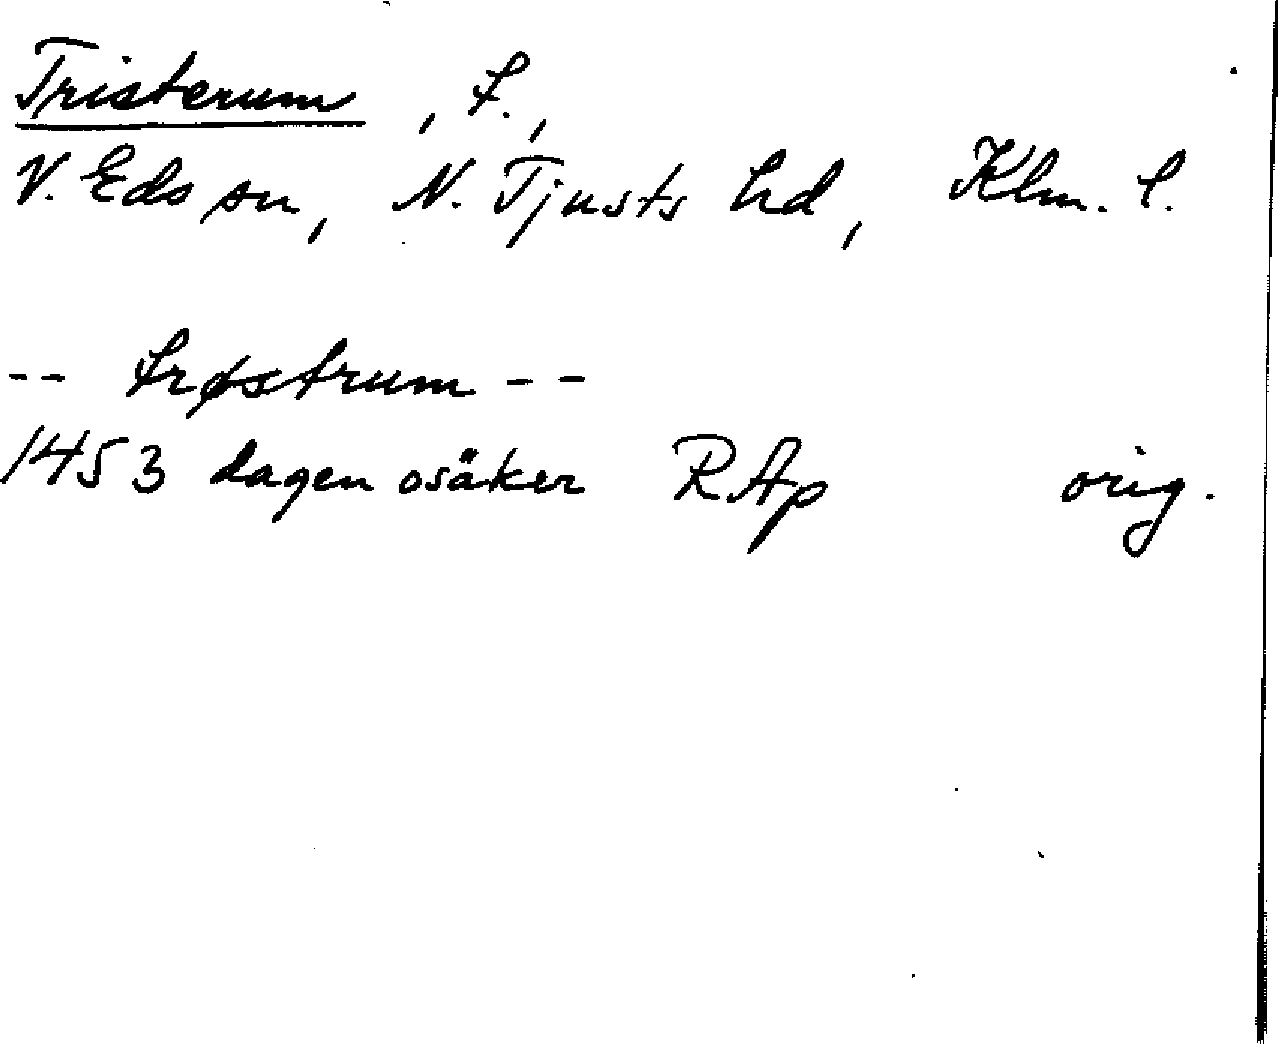 Tristerum, f.,
V. Eds sn, N. Tjusts hd, Klm. l.
-- trøstrum --
1453 dagen osäker RAp orig.